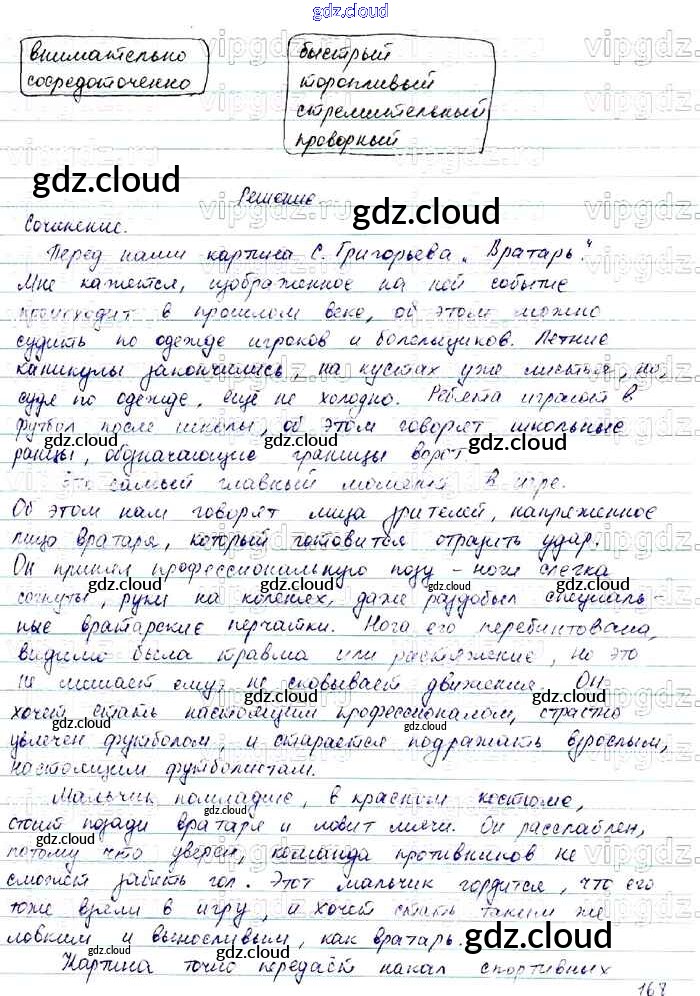 gdz.cloud
внимательно
сосредоточенно
быстрый
торопливый
стремительный
проворный
Решение
Сочинение.
Перед нами картина С. Григорьева „Вратарь".
Мне кажется, изображенное на ней событие
происходит в прошлом веке, об этом можно
судить по одежде игроков и болельщиков. Летние
каникулы закончились, на кустах уже листья, но,
судя по одежде, ещё не холодно. Ребята играют в
футбол после школы, об этом говорят школьные
ранцы, обозначающие границы ворот.
Это самый главный момент в игре.
Об этом нам говорят лица зрителей, напряженное
лицо вратаря, который готовится отразить удар.
Он принял профессиональную позу – ноги слегка
согнуты, руки на коленях, даже раздобыл специаль-
ные вратарские перчатки. Нога его перебинтована,
видимо была травма или растяжение, но это
не мешает ему, не сковывает движения. Он
хочет стать настоящим профессионалом, страстно
увлечен футболом, и старается подражать взрослым,
настоящим футболистам.
Мальчик помладше, в красном костюме,
стоит позади вратаря и ловит мячи. Он расслаблен,
потому что уверен, команда противников не
сможет забить гол. Этот мальчик гордится, что его
тоже взяли в игру, и хочет стать таким же
ловким и выносливым, как вратарь.
Картина точно передаёт накал спортивных
168